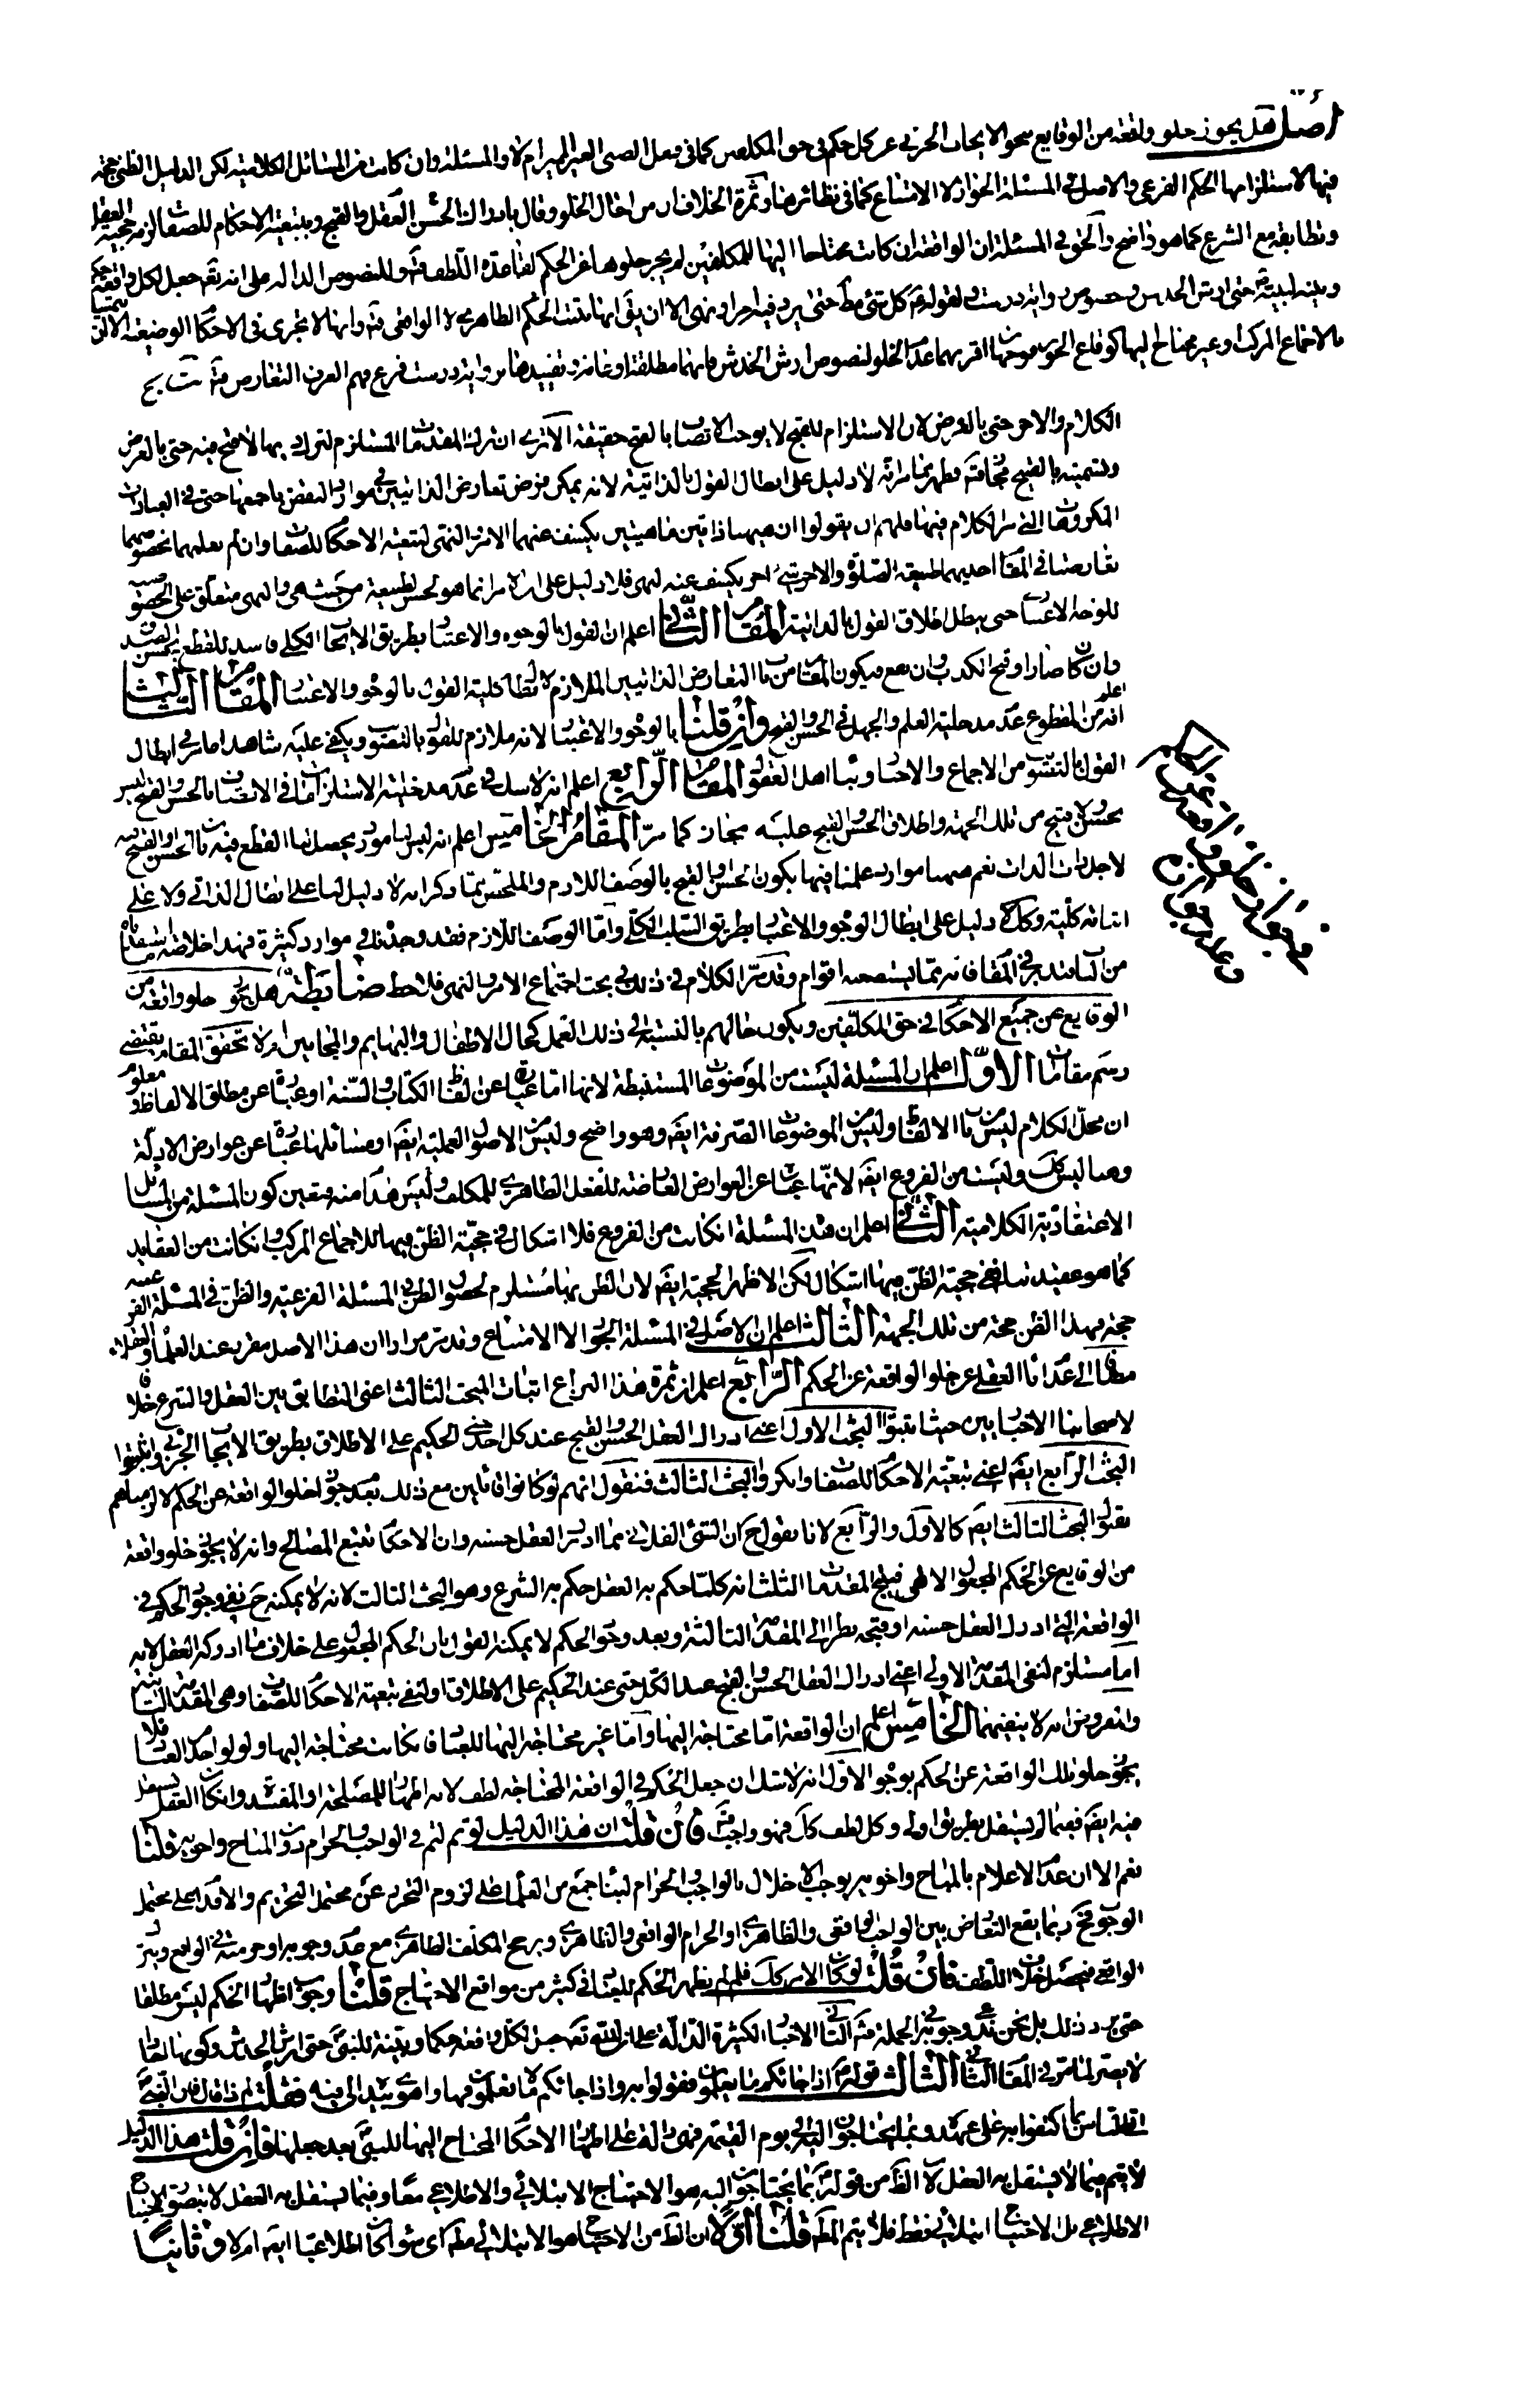 اصل هل يجوز خلو واقعة من الوقايع بنحو الايجاب الجزئى عن كل حكم فى حق المكلفين كما فى فعل الصبى الغير المميز ام لا والمسئلة وان كانت من المسائل الكلامية لكن الدليل الظنى حجة
فيها لاستلزامها الحكم الفرعى والاصل فى المسئلة الجواز لا الامتناع كما فى نظائرها وثمرة الخلاف ان من احال الخلو وقال بادراك العقل الحسن والقبح وبتبعية الاحكام للصفات لزمه حجية العقل
وتطابقه مع الشرع كما هو واضح والحق فى المسئلة ان الواقعة ان كانت محتاجا اليها للمكلفين لم يجز خلوها عن الحكم لقاعدة اللطف فت وللنصوص الدالة على انه تع جعل لكل واقعة حكم
وبينه لنبيه ص حتى ارش الخدش وخصوص رواية درست ولقوله ع كل شئ مط حتى يرد فيه امر او نهى الا ان يق انها تثبت الحكم الظاهرى لا الواقعى فت وانها لا تجرى فى الاحكام الوضعية الا ان يتمسك
بالاجماع المركب او غير محتاج اليها اقربهما عدم الخلو لنصوص ارش الخدش فانها مطلقة او عامة وتقييدها برواية درست فرع فهم العرف التعارض فت
الكلام والاخر حتى بالعرض لان الاستلزام للقبح لا يوجب الاتصاف بالقبح حقيقة الا ترى ان ترك المقدمات المستلزم لترك ذيها لا قبح فيه حتى بالعرض
وتسميته بالقبيح مجاز فت فظهر مما مر انه لا دليل على ابطال القول بالذاتية لانه يمكن فرض تعارض الذاتيين فى موارد النقض باجمعها حتى فى العبادات
المكروهة التى مر الكلام فيها فلهم ان يقولوا ان هيهنا ذاتيتين ماهيتين يكشف عنهما الامر والنهى لتبعية الاحكام للصفات وان لم نعلمهما بخصوصهما
تعارضتا فى المقام احديهما طبيعة الصلوة والاخرى شئ اخر يكشف عنه النهى فلا دليل على ان الامر انما هو لحسن الطبيعة من حيث هى والنهى متعلق على الخصوصية
للوجه والاعتبار حتى يبطل اطلاق القول بالذاتية المقام الثانى اعلم ان القول بالوجوه والاعتبار بطريق الايجاب الكلى فاسد للقطع بحسن الصدق
وان كان ضارا وقبح الكذب وان نفع فيكون المقام من باب التعارض الذاتيين الملازم لابطال كلية القول بالوجوه والاعتبار المقام الثالث اعلم
انه من المقطوع عدم مدخلية العلم والجهل فى الحسن والقبح وان قلنا بالوجوه والاعتبار لانه ملازم للقول بالتصويب ويكفى عليه شاهدا ما مر فى ابطال
القول بالتصويب من الاجماع والاخبار وبناء اهل العقول المقام الرابع اعلم انه لا شك فى عدم مدخلية الاستلزامات فى الاتصاف بالحسن والقبح فليس
بحسن ولا قبيح من تلك الجهة واطلاق الحسن والقبح عليه مجاز كما مر المقام الخامس اعلم انه ليس لنا مورد يحصل لنا القطع فيه بان الحسن والقبح فيه
لاجل ذات الذات نعم هيهنا موارد علمنا فيها بكون الحسن والقبح بالوصف اللازم والملخص مما ذكر انه لا دليل لنا على ابطال الذاتى ولا على
اثباته كلية وكك لا دليل على ابطال الوجوه والاعتبار بطريق السلب الكلى واما الوصف اللازم فقد وجدنا فى موارد كثيرة فهذا خلاصة ما استفدنا
من الاساتيد فى المقام فانه مما يستصعبه اقوام وقد مر الكلام فى ذلك فى بحث اجتماع الامر والنهى فلاحظ ضابطة هل يجوز خلو واقعة من
الوقايع عن جميع الاحكام فى حق المكلفين ويكون حالهم بالنسبة الى ذلك العمل كحال الاطفال والبهايم والمجانين ام لا تحقيق المقام يقتضى
رسم مقامات الاول اعلم ان المسئلة ليست من الموضوعات المستنبطة لانها اما عبارة عن لفظ الكتاب والسنة او عبارة عن مطلق الالفاظ ومعلوم
ان محل الكلام ليس من باب الالفاظ وليس من الموضوعات الصرفة ايضا وهو واضح وليس من الاصول العملية ايضا اذ مسائلها عبارة عن عوارض الادلة
وهنا ليس كك وليست من الفروع ايضا لانها عبارة عن العوارض العارضة للفعل الظاهرى للمكلف وليس هذا منه فتعين كون المسئلة من المسائل
الاعتقادية الكلامية الثانى اعلم ان هذه المسئلة ان كانت من الفروع فلا اشكال فى حجية الظن فيها للاجماع المركب وان كانت من العقايد
كما هو عقيدتنا ففى حجية الظن فيها اشكال لكن الاظهر الحجية ايضا لان الظن بها مستلزم لحصول الظن فى المسئلة الفرعية والظن فى المسئلة الفرعية
حجة فهذا الظن حجة من تلك الجهة الثالث اعلم ان الاصل فى المسئلة الجواز لا الامتناع وقد مر مرارا ان هذا الاصل مقرر عند العلماء والعقلاء
مضافا الى عدم اباء العقل عن خلو الواقعة عن الحكم الرابع اعلم ان ثمرة هذا النزاع اثبات المبحث الثالث اعنى التطابق بين العقل والشرع خلافا
لاصحابنا الاخباريين حيث اثبتوا البحث الاول اعنى ادراك العقل الحسن والقبح عند كل احد حتى الحكيم على الاطلاق بطريق الايجاب الجزئى واثبتوا
البحث الرابع ايضا اعنى تبعية الاحكام للصفات وانكروا البحث الثالث فنقول انهم لو كانوا قائلين مع ذلك بعدم جواز خلو الواقعة عن الحكم لالزمناهم
بقبول البحث الثالث ايضا كالاول والرابع لانا نقول ح ان الشئ الفلانى مما ادرك العقل حسنه وان الاحكام تتبع المصالح وانه لا يجوز خلو واقعة
من الوقايع عن الحكم المجعول الالهى فينتج المقدمات الثلث انه كلما حكم به العقل حكم به الشرع وهو البحث الثالث لانه لا يمكنه ح نفى وجود الحكم فى
الواقعة التى ادرك العقل حسنه او قبحه نظرا الى المقدمة الثالثة وبعد وجود الحكم لا يمكنه القول بان الحكم المجعول على خلاف ما ادركه العقل لانه
اما مستلزم لنفى المقدمة الاولى اعنى ادراك العقل الحسن والقبح عند الكل حتى عند الحكيم على الاطلاق او لنفى تبعية الاحكام للصفات وهى المقدمة الثانية
والمفروض انه لا ينفيهما الخامس اعلم ان الواقعة اما محتاجة اليها واما غير محتاجة اليها للعباد فان كانت محتاجة اليها ولو لواحد من العباد فلا
يجوز خلو تلك الواقعة عن الحكم بوجوه الاول انه لا شك ان جعل الحكم فى الواقعة المحتاجة لطف لانه اظهار للمصلحة او المفسدة وان كان العقل يستقل
فيه ايضا ففيما لم يستقل بطريق اولى وكل لطف كك فهو واجب فت فان قلت ان هذا الدليل لو تم لتم فى الواجب والحرام دون المباح واخويه قلنا
نعم الا ان عدم الاعلام بالمباح واخويه يوجب الاخلال بالواجب والحرام لبناء جمع من العلماء على لزوم التحرز عن محتمل التحريم والاقدام على محتمل
الوجوب فح ربما يقع التعارض بين الواجب الواقعى والظاهرى او الحرام الواقعى والظاهرى ويرجح المكلف الظاهرى مع عدم وجوبه او حرمته فى الواقع ويترك
الواقعى فيحصل خلاف اللطف فان قلت لو كان الامر كك فلم لم يظهر الحكم للعباد فى كثير من مواقع الاحتياج قلنا وجوب اظهار الحكم ليس مطلقا
حتى يرد ذلك بل نحن ندعى وجوبه فى الجملة فت الثانى الاخبار الكثيرة الدالة على ان لله تع جعل لكل واقعة حكما وبينه للنبى ص حتى ارش الخدش وكونها احادا
لا يضر لما مر فى المقام الثانى الثالث قوله ع اذا جائكم ما تعلمون فقولوا به واذا جائكم ما لا تعلمون فها واهوى بيده الى فيه فقلت لم ذا قال لان النبى ص
اتى الناس بما اكتفوا به على عهده وبما يحتاجون اليه الى يوم القيمة فهى دالة على اظهار الاحكام المحتاج اليها للنبى ص بعد جعلها فان قلت هذا الدليل
لا يتم فيما لا يستقل به العقل لان الظ من قوله ع بما يحتاجون اليه هو الاحتياج الابتلائى والاطلاعى معا وفيما يستقل به العقل لا يتصور الاحتياج
الاطلاعى بل الاحتياج ابتلائى فقط فلا يتم المط قلنا اولا ان الظ من الاحتياج هو الابتلائى مط اى سواء كان اطلاعيا ايضا ام لا وثانيا